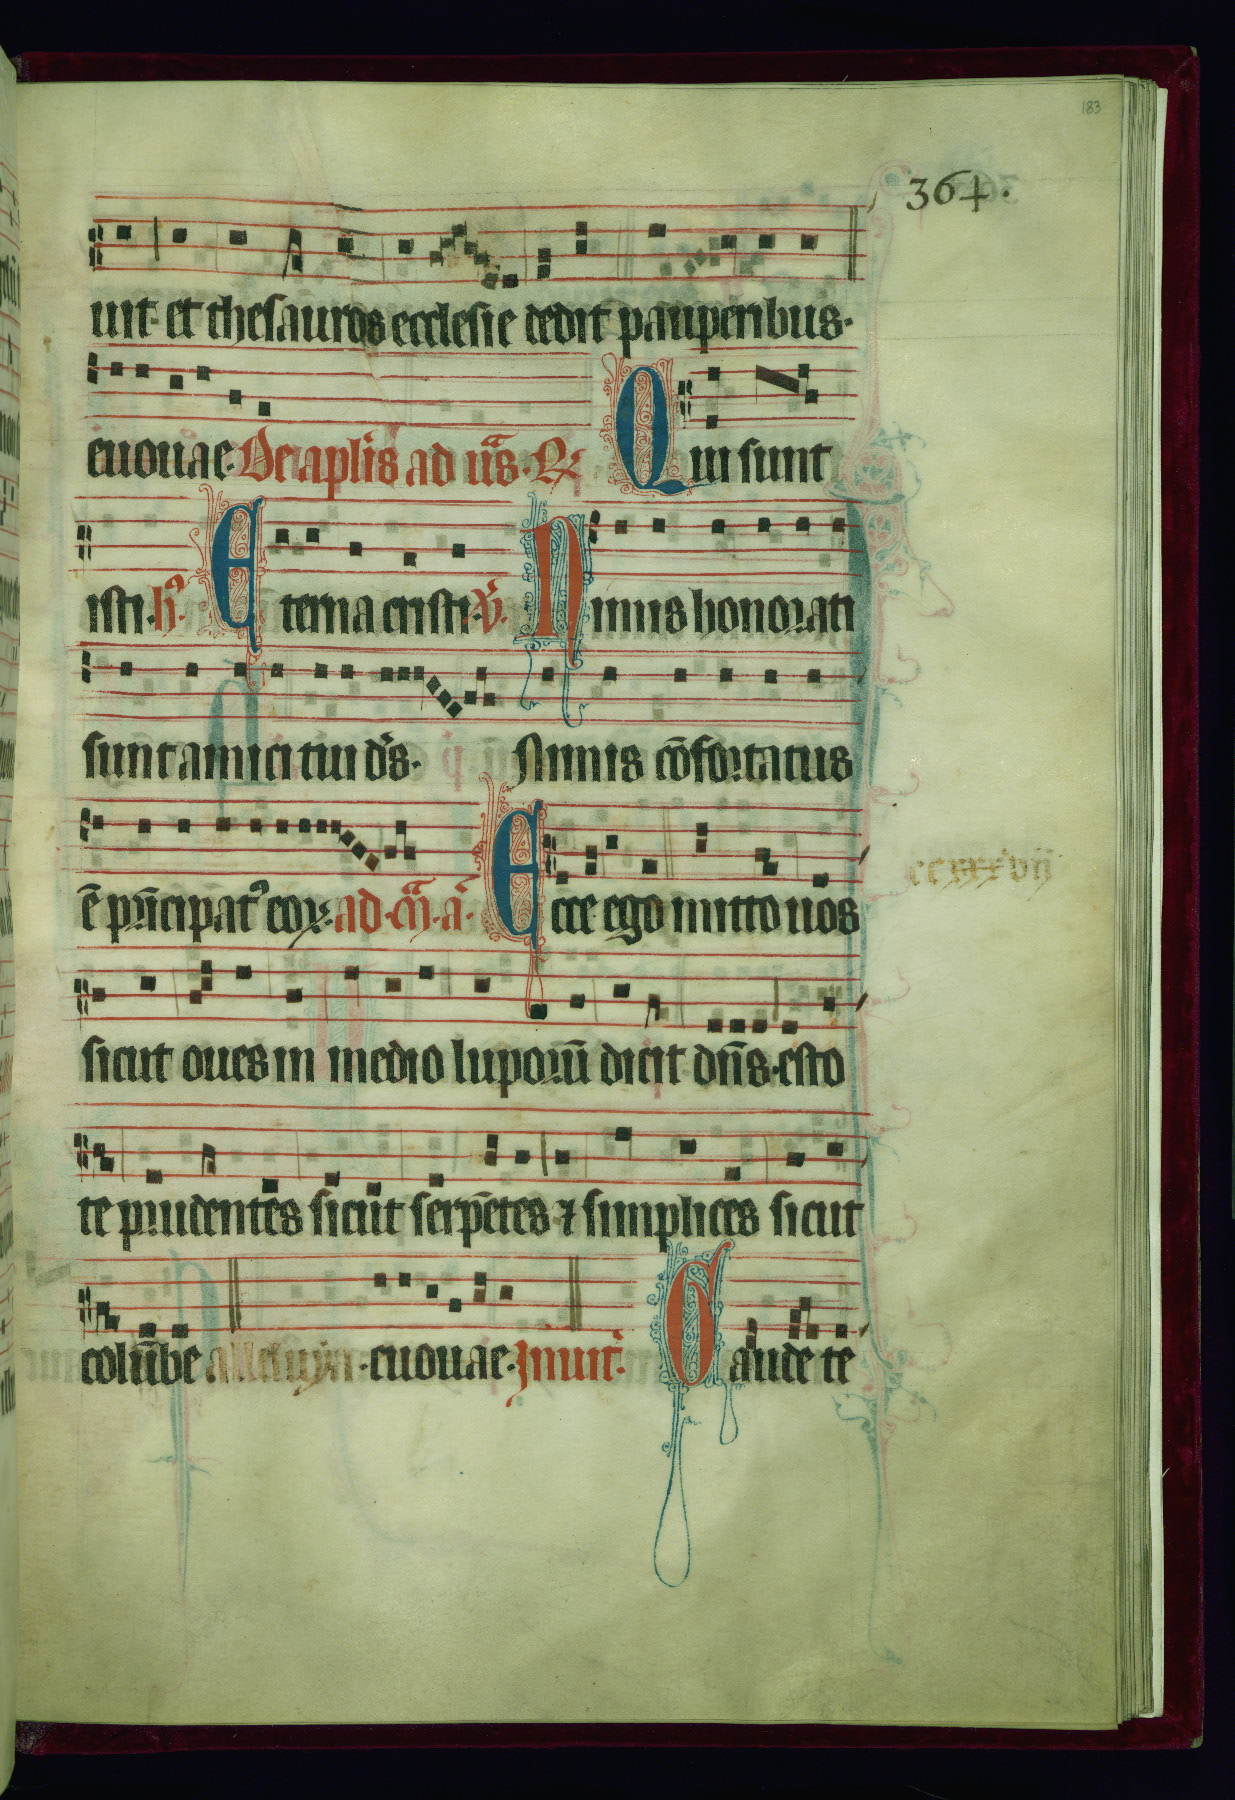 183
364.
uit et thesauros ecclesie dedit pauperibus.
euouae. De aplis ad uas. R Qui sunt
isti. h Eterna cristi. V. Nimis honorati
sunt amici tui ds. Nimis cōfortatus
ē pncipat eoꝝ. ad m̄. a. Ecce ego mitto uos
sicut oues in medio luporū dicit dn̄s. esto
te prudentes sicut serpētes ⁊ simplices sicut
colūbe alleluya. euouae. Inuit. Gaudete